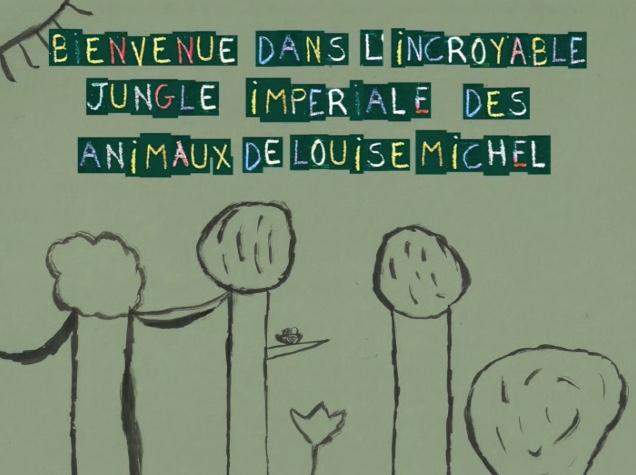 BiENVENUE DANS L'iNCROYABLE
JUNGLE iMPERiALE DES
ANiMAUX DE LOUiSE MiCHEL